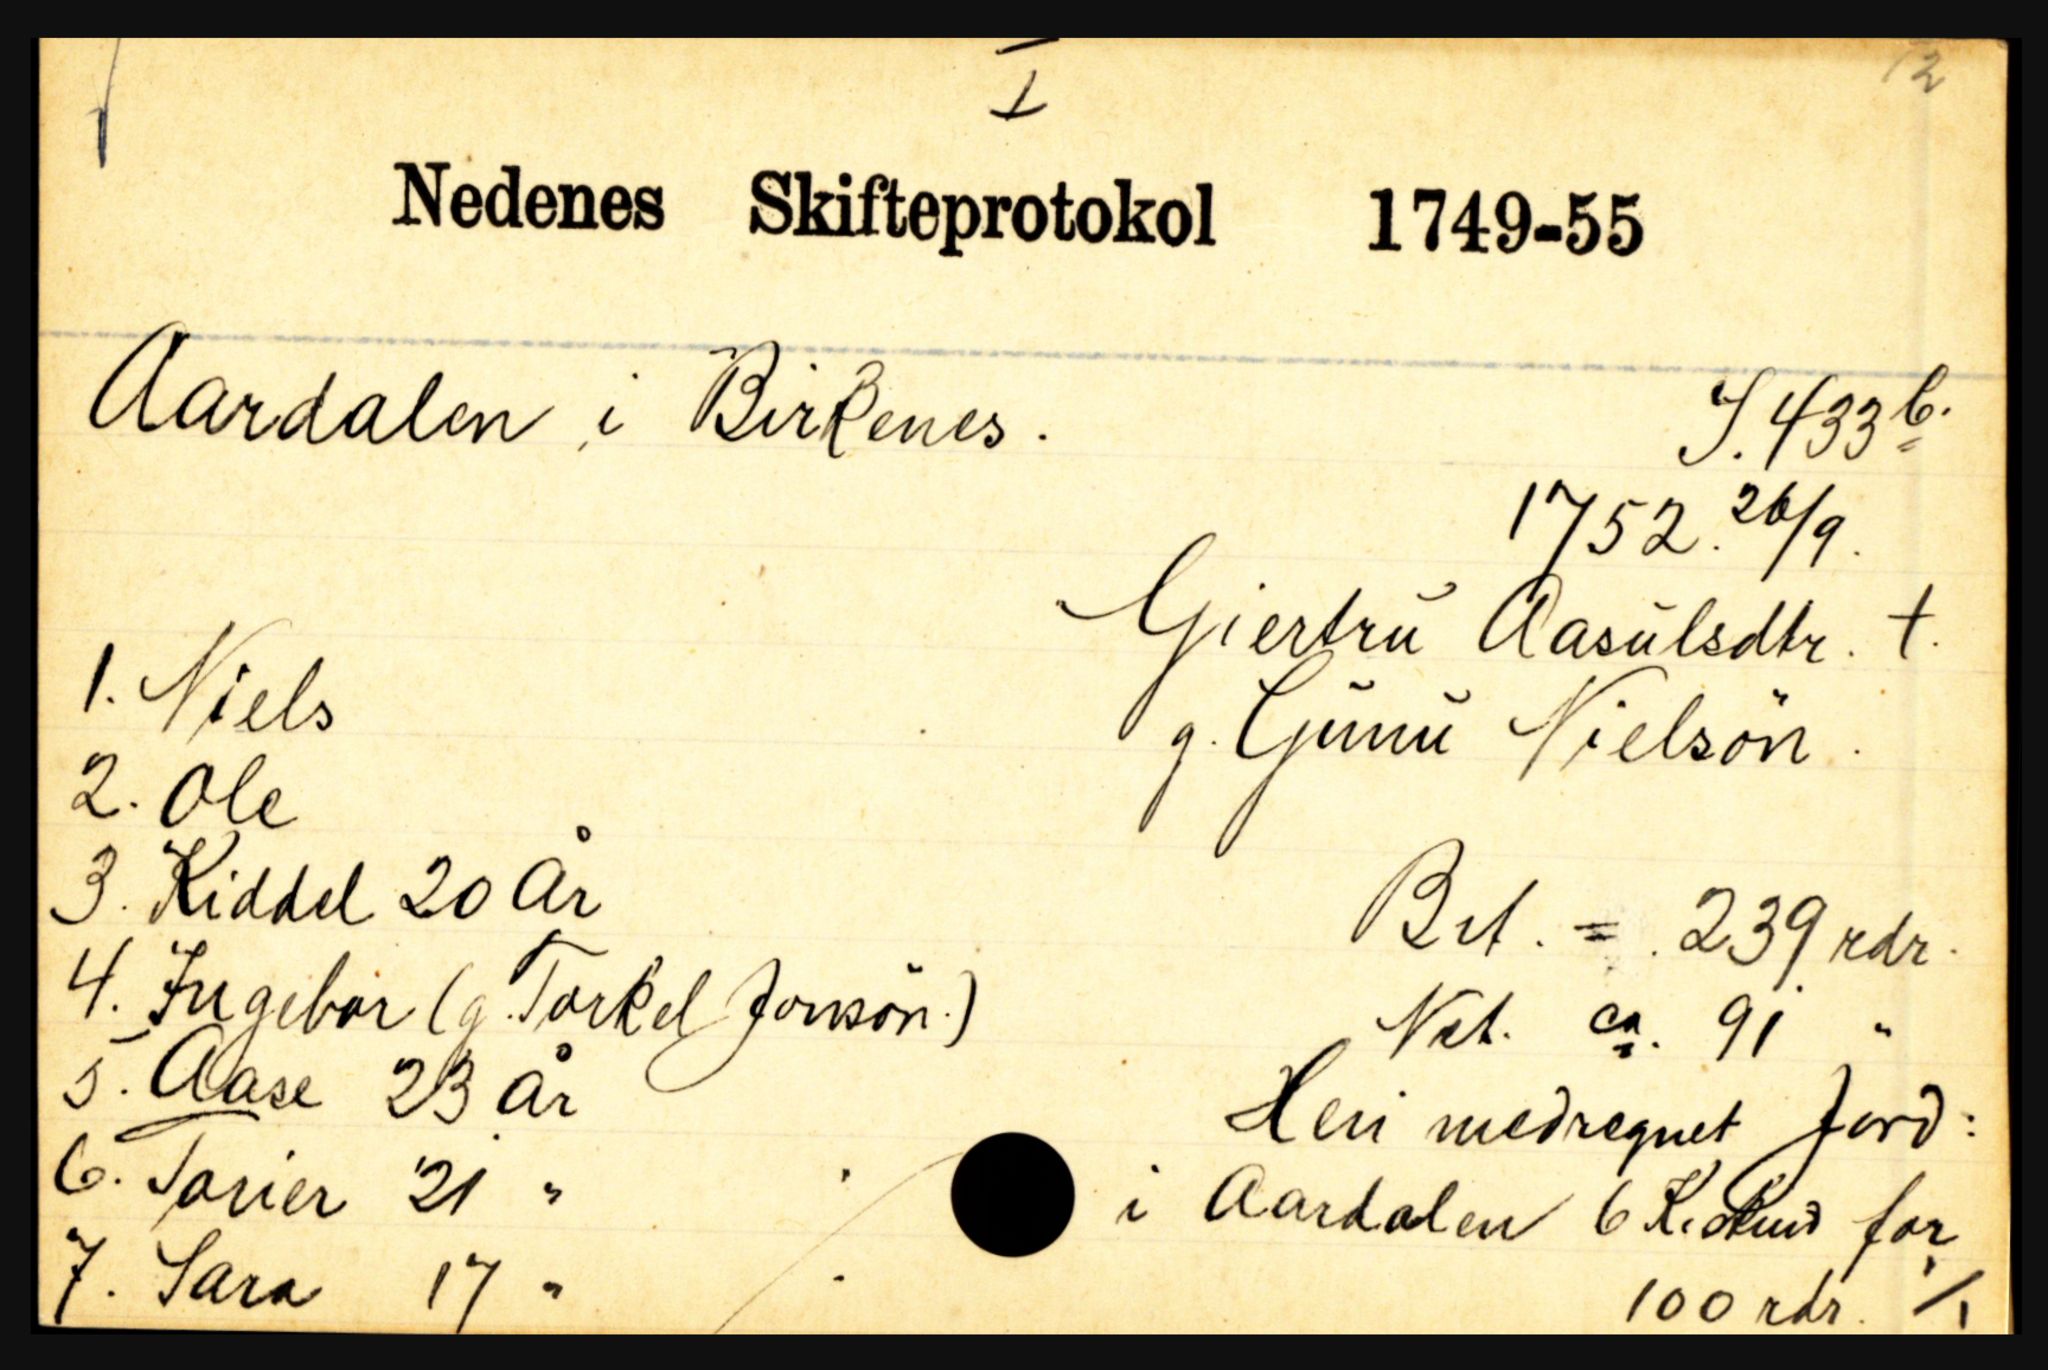 I
12
Nedenes Skifteprotokol 1749-55
Aardalen i Birkenes.
S. 433 b.
1752. 26/9.
Giertru Aasulsdtr. †.
g. Gunu Nielsön.
1. Niels
2. Ole
3. Kiddel 20 år
4. Ingebor (g. Torkel Jonsön.)
5. Aase 23 år
6. Torier 21 "
7. Sara 17 "
Brt. = 239 rdr.
Net. ca. 91 "
Heri medregnet Jord:
i Aardalen 6 K. skind for
100 rdr. ./.